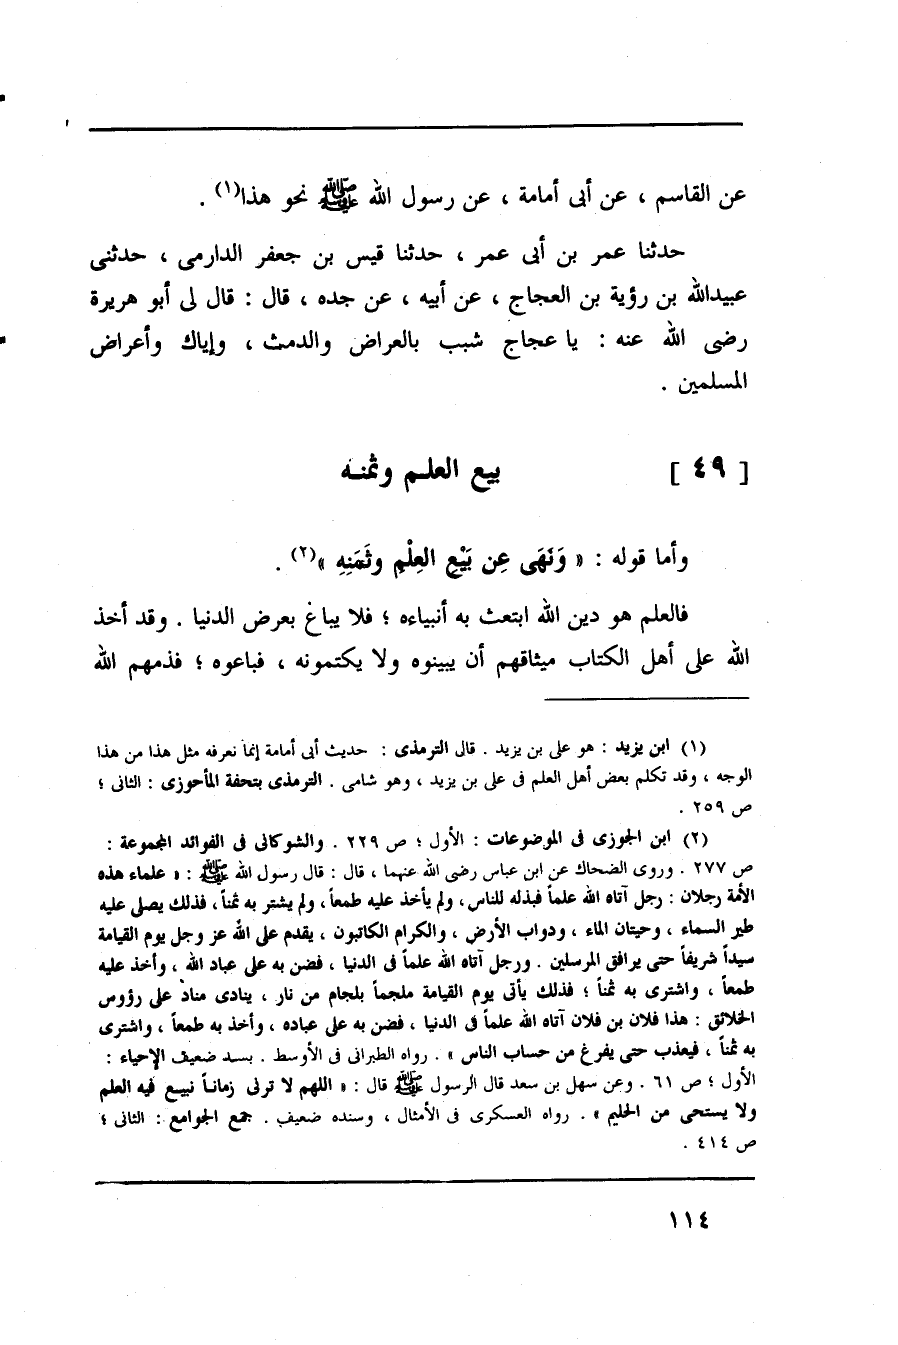 عن القاسم ، عن أبى أمامة ، عن رسول الله ﷺ نحو هذا(١) .
حدثنا عمر بن أبى عمر ، حدثنا قيس بن جعفر الدارمى ، حدثنى
عبيدالله بن رؤية بن العجاج ، عن أبيه ، عن جده ، قال : قال لى أبو هريرة
رضى الله عنه : يا عجاج شبب بالعراض والدمث ، وإياك وأعراض
المسلمين .
[ ٤٩ ] بيع العلـم وثمنـه
وأما قوله : « وَنَهَى عِن بَيْعِ العِلْمِ وثَمَنِهِ »(٢) .
فالعلم هو دين الله ابتعث به أنبياءه ؛ فلا يباغ بعرض الدنيا . وقد أخذ
الله على أهل الكتاب ميثاقهم أن يبينوه ولا يكتمونه ، فباعوه ؛ فذمهم الله
(١) ابن يزيد : هو على بن يزيد . قال الترمذى : حديث أبى أمامة إنما نعرفه مثل هذا من هذا
الوجه ، وقد تكلم بعض أهل العلم فى على بن يزيد ، وهو شامى . الترمذى بتحفة المأحوزى : الثانى ؛
ص ٢٥٩ .
(٢) ابن الجوزى فى الموضوعات : الأول ؛ ص ٢٢٩ . والشوكانى فى الفوائد المجموعة :
ص ٢٧٧ . وروى الضحاك عن ابن عباس رضى الله عنهما ، قال : قال رسول الله ﷺ : « علماء هذه
الأمة رجلان : رجل آتاه الله علماً فبذله للناس، ولم يأخذ عليه طمعاً، ولم يشتر به ثمناً، فذلك يصلى عليه
طير السماء ، وحيتان الماء ، ودواب الأرض ، والكرام الكاتبون ، يقدم على الله عز وجل يوم القيامة
سيداً شريفاً حتى يرافق المرسلين . ورجل آتاه الله علماً فى الدنيا ، فضن به على عباد الله ، وأخذ عليه
طمعاً ، واشترى به ثمناً ؛ فذلك يأتى يوم القيامة ملجماً بلجام من نار ، ينادى مناد على رؤوس
الخلائق : هذا فلان بن فلان آتاه الله علماً فى الدنيا ، فضن به على عباده ، وأخذ به طمعاً ، واشترى
به ثمناً ، فيعذب حتى يفرغ من حساب الناس » . رواه الطبرانى فى الأوسط . بسد ضعيف الإحياء :
الأول ؛ ص ٦١ . وعن سهل بن سعد قال الرسول ﷺ قال : « اللهم لا ترنى زمانـاً نبيـع فيه العلم
ولا يستحى من الحليم » . رواه العسكرى فى الأمثال ، وسنده ضعيف . جمع الجوامع : الثانى ؛
ص ٤١٤ .
١١٤